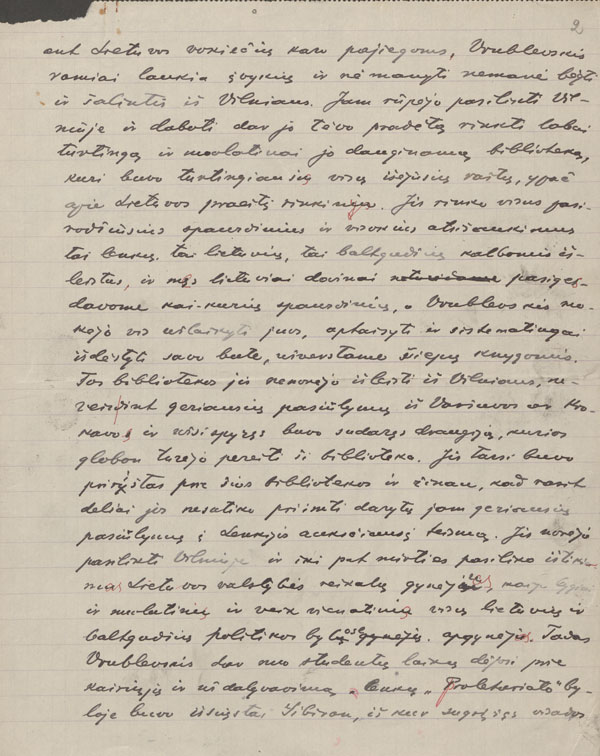 2
ant Lietuvos vokiečių karo pajiegoms, Vrublevskis
ramiai laukia įvykių ir nė manyti nemanė bėgti
ir šalintis iš Vilniaus. Jam rūpėjo pasilikti Vil-
niuje ir daboti dar jo tėvo pradėtą rinkti labai
turtingą ir nuolatinai jo dauginamą biblioteką,
kuri buvo turtingiausią visų išėjusių raštų, ypač
apie Lietuvos praeitį rinkinys. Jis rinko visus pasi-
rodžiusius spausdinius ir visokius atsišaukimus
tai lenkų, tai lietuvių, tai baltgudžių kalbomis iš-
leistus, ir mes lietuviai dovinai pasiges-
davome kai-kurių spausdinių, o Vrublevskis mo-
kėjo vis išlaikyti juos, aptaisyti ir sistematingai
išdėstyti savo bute, užverstame šiepų knygomis.
Tos bibliotekos jis nenorėjo išleisti iš Vilniaus, ne-
veizdint geriausių pasiūlymų iš Varšuvos ar Kro-
kavos ir užsispyręs buvo sudaręs draugiją, kurios
globon turėjo pereiti ši biblioteka. Jis tarsi buvo
pririštas prie šios bibliotekos ir žinau, kad rasit
dėliai jos nesutiko priimti darytų jam geriausių
pasiūlymų į Lenkijos aukščiausį teismą. Jis norėjo
pasilikti Vilniuje ir iki pat mirties pasiliko ištiki-
mas Lietuvos valstybės reikalų gynėjas, kaip lygiai
ir nuolatinis ir veik vienatinis visų lietuvių ir
baltgudžių politikos bylose gynėjas. Tadas
Vrublevskis dar nuo studentų laikų dėjosi prie
kairiųjų ir už dalyvavimą lenkų „Proletariato" by-
loje buvo išsiųstas Sibiran, iš kur sugrįžęs visados